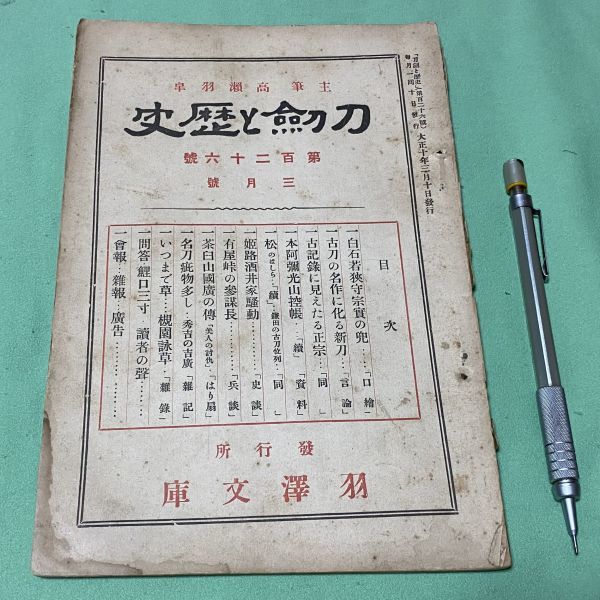 「刀劍と歴史」第百二十六號
毎月一回十日發行
大正十年三月十日發行
主筆高瀨羽皐
刀劍と歷史
第百二十六號
三月號
目次
一白石若狹守宗實の兜……「口繪」
一古刀の名作に化る新刀…「言論」
一古記錄に見えたる正宗…「同」
一本阿彌光山控帳…「續」「資料」
一松のはしら…「續」…鎌田の古刀位列…「同」
一姬路酒井家騷動………「史談」
一有屋峠の參謀長………「兵談」
一茶臼山國廣の傳「美人の討仇」「はり扇」
一名刀疵物多し…秀吉の吉廣「雜記」
一いつまで草…槻園詠草…「雜錄」
一問答鯉口三寸 讀者の聲……
一會報…雜報…廣告…………
發行所
羽澤文庫